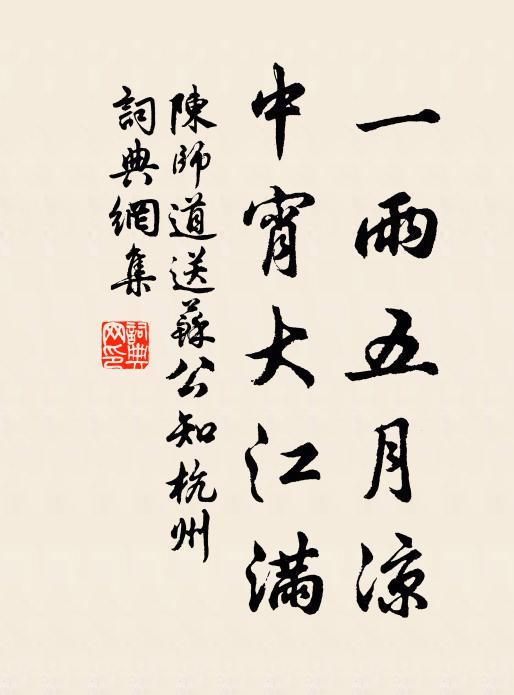 一雨五月涼
中宵大江滿
陳師道送蘇公知杭州
詞典網集
詞典網印